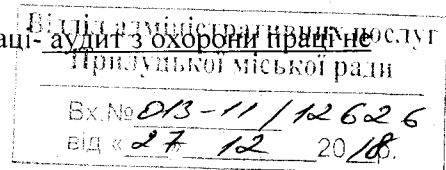 Відділ адміністративних послуг
аці- аудит з охорони праці не
Прилуцької міської ради
Вх.№ 013-11/12626
від « 27 » 12 2018р.